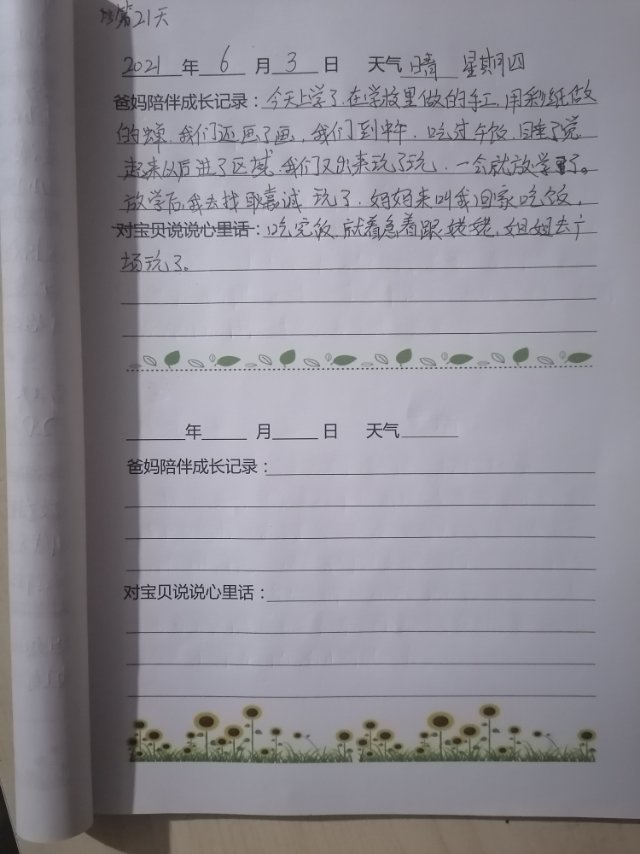 第21天
2021年6月3日 天气晴 星期四
爸妈陪伴成长记录：今天上学了.在学校里做的手工.用彩纸做
的蝉.我们还画了画，我们到中午.吃过午饭.睡了觉
起来以后进了区域.我们又出来玩了玩.一会就放学了。
放学后.我去找取嘉诚玩了.妈妈来叫我回家吃饭，
对宝贝说说心里话：吃完饭就着急着跟姥姥.姐姐去广
场玩了。
年 月 日 天气
爸妈陪伴成长记录：
对宝贝说说心里话：